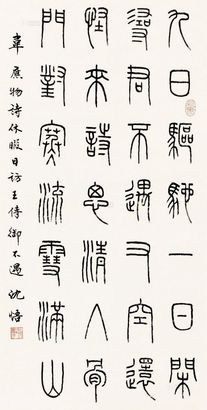 九日驅馳一日閑
尋君不遇又空還
怪來詩思清人骨
門對寒流雪滿山
韋應物詩休暇日訪王侍御不遇 沈愔